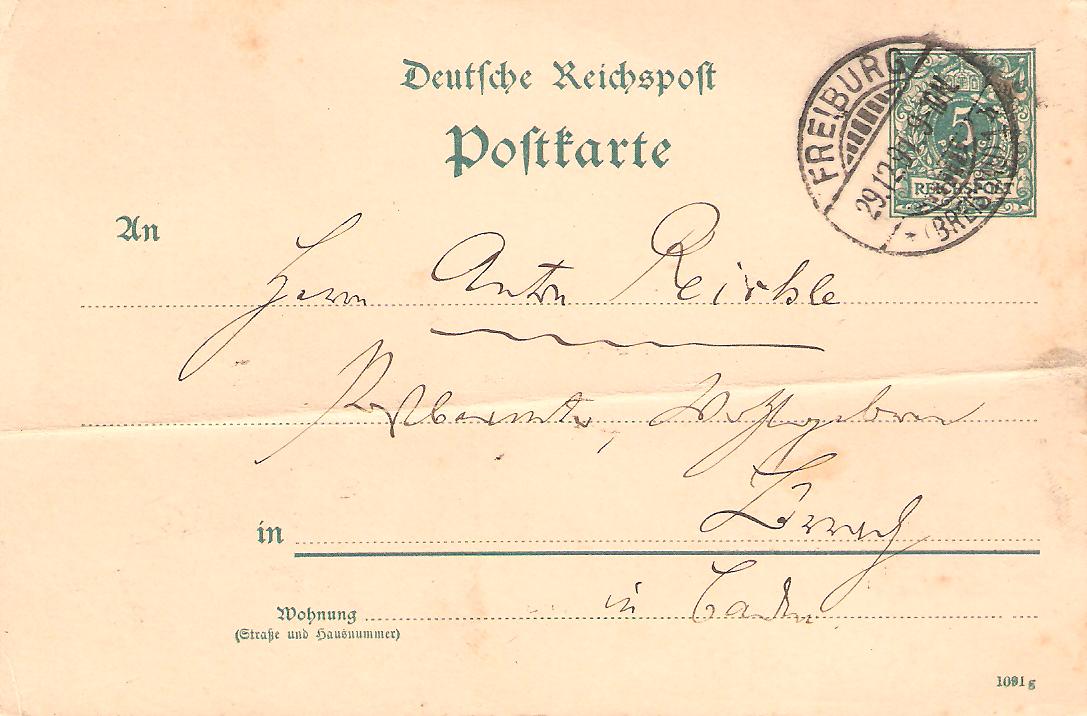 Deutsche Reichspost
Postkarte
FREIBURG
5
REICHSPOST
29.12.
* (BREISGAU) 1.
An
Herrn Anton Reichle
Postbeamter, Wohlgeboren
in Lörrach
in Baden
Wohnung
(Straße und Hausnummer)
1091 g